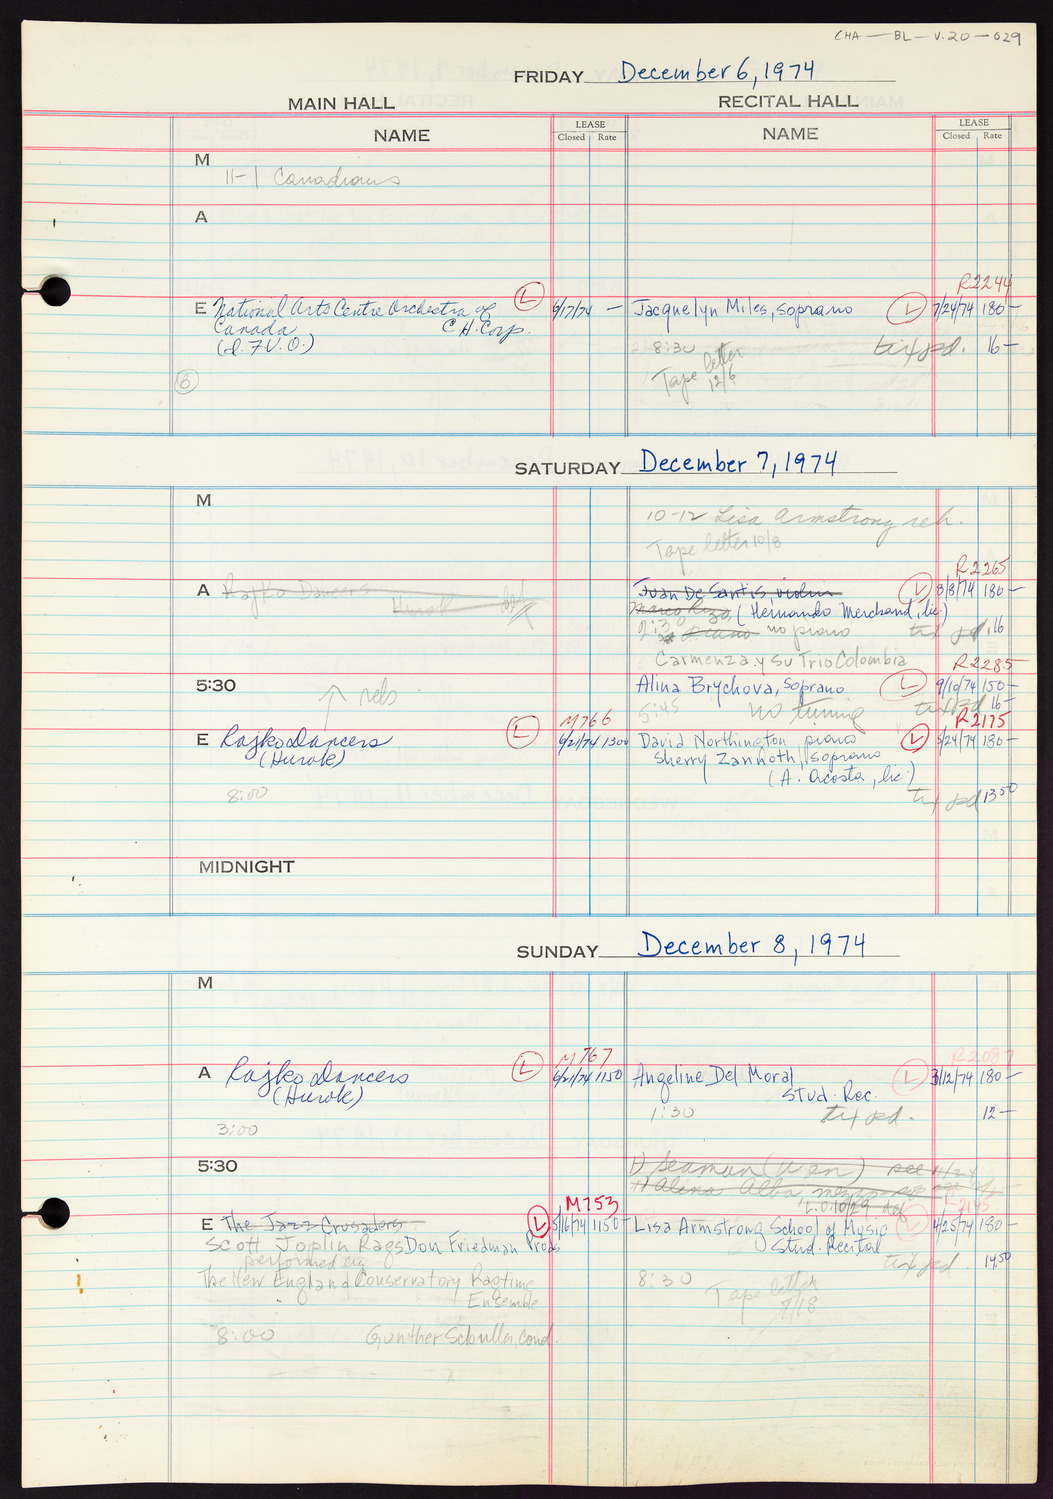 CHA — BL — V.20 — 029
FRIDAY December 6, 1974
MAIN HALL RECITAL HALL
NAME LEASE NAME LEASE
Closed Rate Closed Rate
M
11-1 Canadians
A
R2244
E National Arts Centre Orchestra of L 6/17/74 — Jacquelyn Miles, soprano L 7/24/74 180 —
Canada C.H. Corp.
(I.F.V.O.) 8:30 tix pd. 16 —
Tape letter
12/6
6
SATURDAY December 7, 1974
M
10-12 Lisa Armstrong reh.
Tape letter 10/8
R2265
A Rajko Dancers Juan De Santis, violin L 3/8/74 180 —
Hurok (Hernando Merchand, lic.)
2:30 piano no piano tix pd. 16
Carmenza y su Trio Colombia
R2285
5:30 rehs Alina Brychova, soprano L 9/10/74 150 —
5:45 no tuning tix pd 16 —
M766 R2175
E Rajko Dancers L 6/21/74 1300 David Northington, piano L 5/24/74 180 —
(Hurok) Sherry Zannoth, soprano
(A. Acosta, lic.)
8:00 tix pd 13.50
MIDNIGHT
SUNDAY December 8, 1974
M
M767 R2087
A Rajko Dancers L 6/21/74 1150 Angeline Del Moral L 3/12/74 180 —
(Hurok) Stud. Rec.
3:00 1:30 tix pd. 12 —
5:30 1) Seaman (Wen)
Alina Alba
L.O. 10/29
M753 R2145
E The Jazz Crusaders L 5/16/74 1150 — Lisa Armstrong School of Music L 4/25/74 180 —
Scott Joplin Rags Don Friedman Prods Stud. Recital
performed by tix pd. 14.50
The New England Conservatory Ragtime 8:30
Ensemble Tape letter
7/18
8:00 Gunther Schuller, cond.